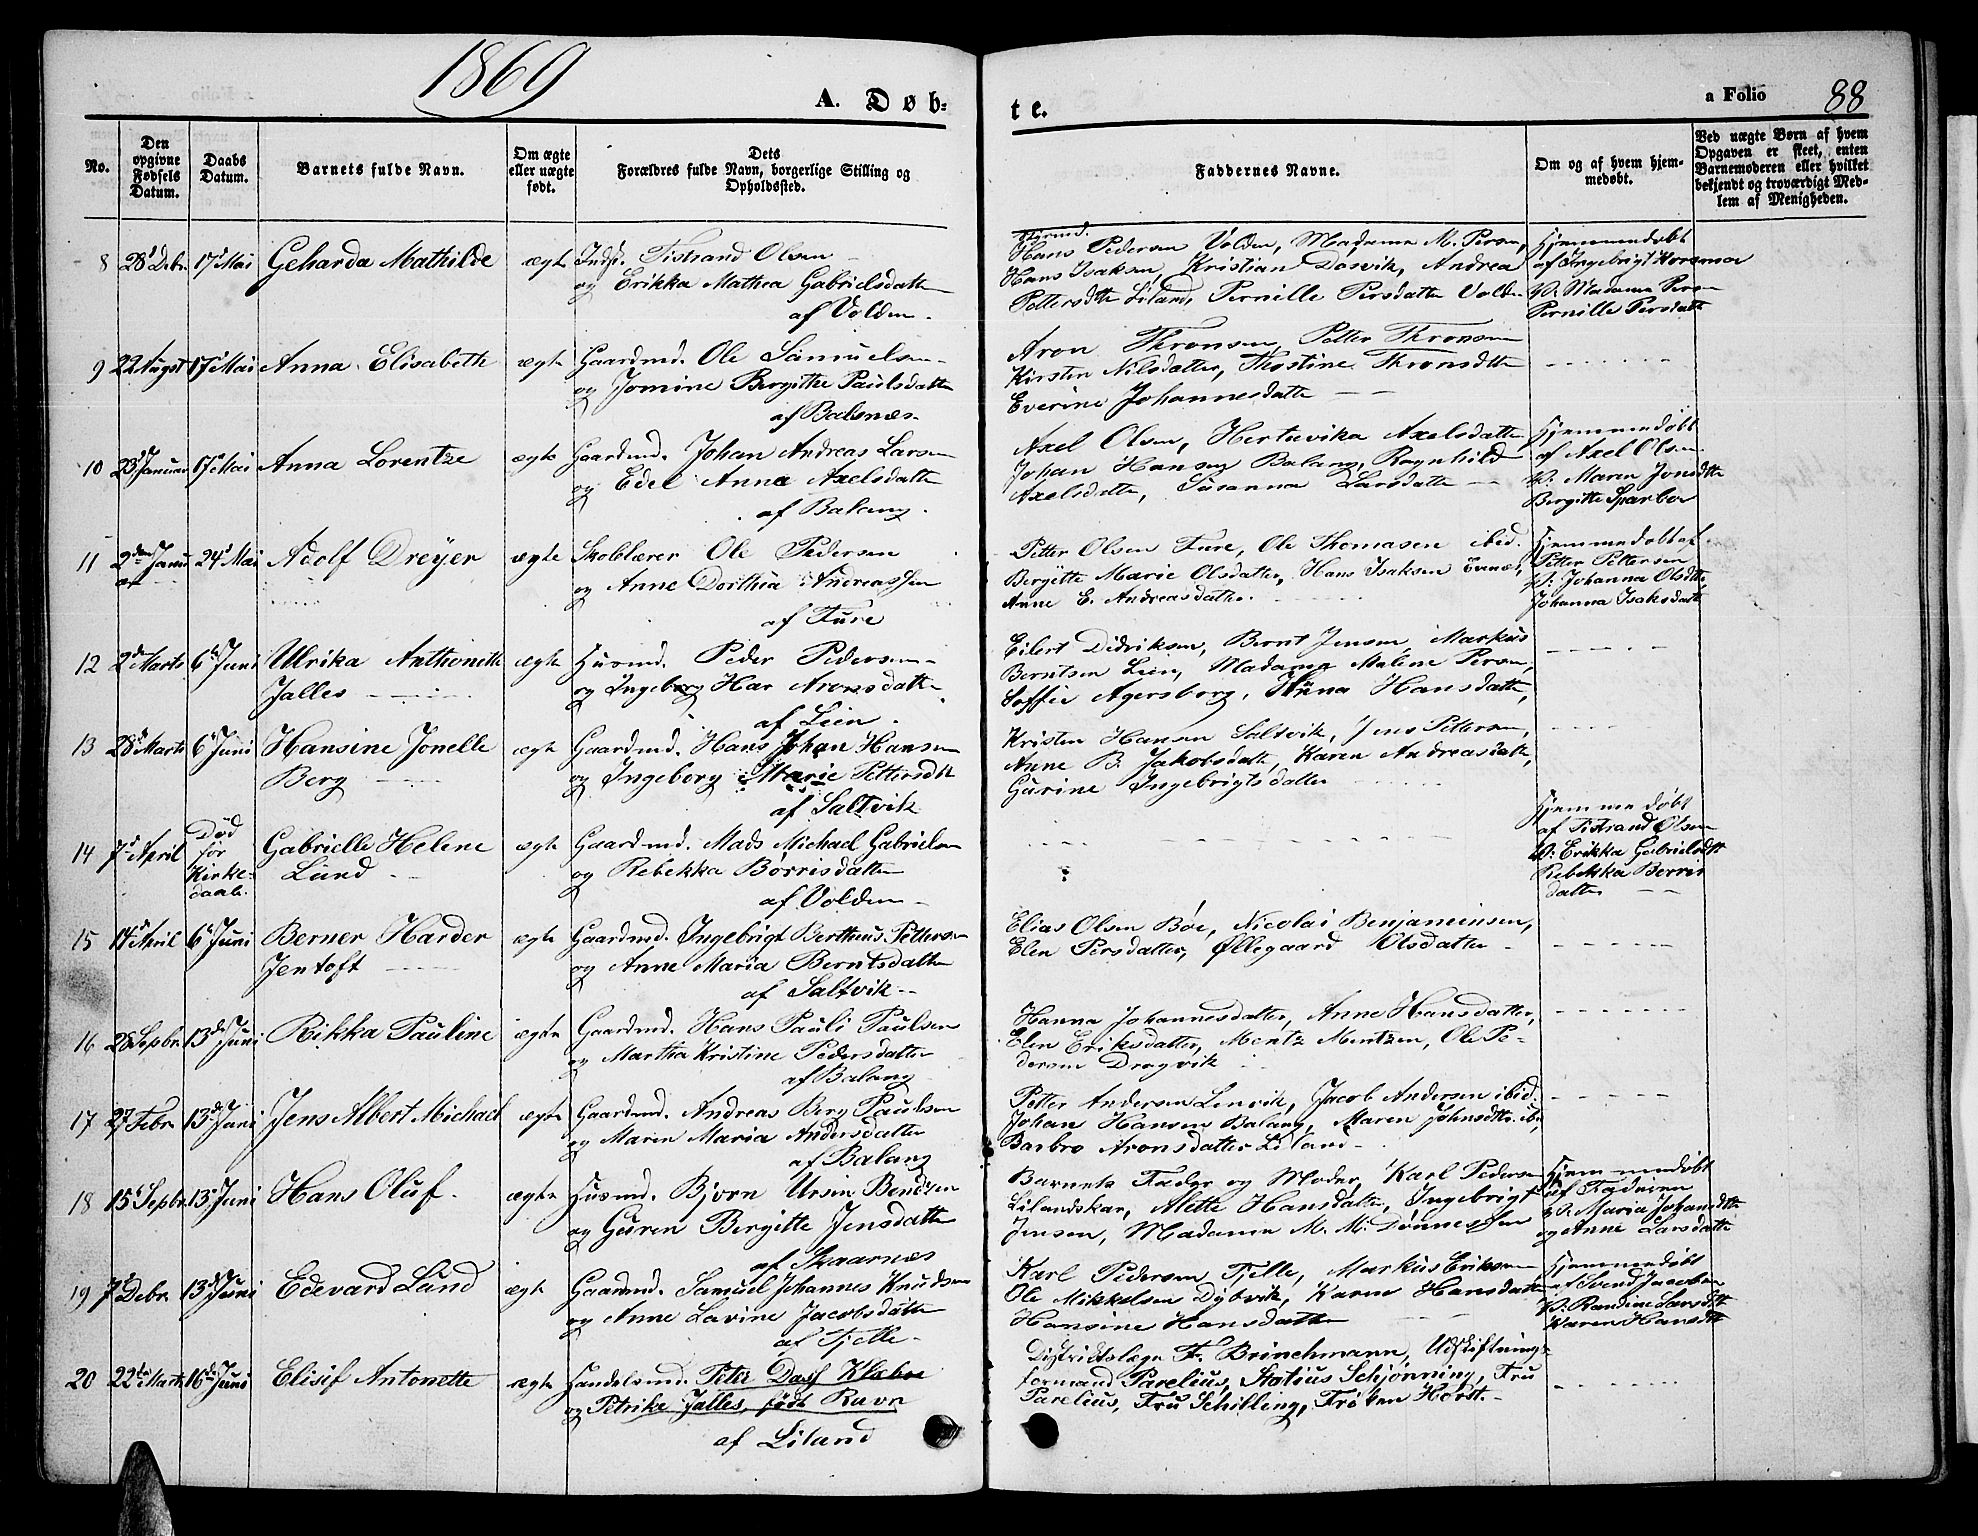 1869
A. Døb-
te.
a Folio 88
No.
Den opgivne Fødsels Datum.
Daabs Datum.
Barnets fulde Navn.
Om ægte eller uægte født.
Dets Forældres fulde Navn, borgerlige Stilling og Opholdssted.
Faddernes Navne.
Om og af hvem hjemmedøbt.
Ved uægte Børn af hvem Opgaven er skeet, enten Barnemoderen eller hvilket bekjendt og troværdigt Medlem af Menigheden.
8 28 Debr. 17 Mai Geharda Mathilde ægte Indst. Tistrand Olsen
og Erikka Mathea Gabrielsdatter
af Volden.
Hans Pedersen Volden, Madame M. Persen,
Hans Isaksen, Kristian Dosvik, Andrea
Pettersdtt Liland, Pernille Persdatter Volden
Hjemmedøbt
af Ingebrigt
V: Madame Persen
Pernille Persdatt
9 22 August 17 Mai Anna Elisabeth ægte Gaardmd. Ole Samuelsen
og Jomine Birgithe Paulsdatter
af Balsnæs
Aron Thronsen, Petter Thronsen
Kirsten Nilsdatter, Thostine Thronsdtt
Everine Johannesdatter
10 23 Januar 17 Mai Anna Lorentze ægte Gaardmd. Johan Andreas Larsen
og Edel Anna Axelsdatter
af Balang.
Axel Olsen, Hertuvika Axelsdatter
Johan Hansen Balang, Ragnhild
Axelsdatter, Susanna Larsdatter
Hjemmedøbt
af Axel Olsen
V: Maren Jonsdtt
Birgitte Sparboe
11 2den Janu ar 24 Mai Adolf Dreyer ægte Skolelærer Ole Pedersen
og Anne Dorthea Andreassen
af Fure
Petter Olsen Fure, Ole Thomasen ibid.
Bergitte Marie Olsdatter, Hans Isaksen Evnæs,
Anne E. Andreasdatter.
Hjemmedøbt af
Petter Pettersen
V: Johanna Olsdtt
Johanna Isaksdatt
12 2den Marts 6 Juni Ulrika Anthonette ægte Husmd. Peder Pedersen
Jalles
og Ingeborg Har Aronsdatter
af Leen.
Eilert Didriksen, Bernt Jensen, Markus
Berntsen Leen, Madame Malene Persen,
Soffie Agersborg, Anna Hansdatter,
13 28 Marts 6 Juni Hansine Jonelle ægte Gaardmd. Hans Johan Hansen
Berg
og Ingeborg Marie Pettersdtt
af Saltvik
Kristen Hansen Saltvik, Jens Pettersen,
Anne B. Jakobsdatt, Karen Andreasdatt,
Gurine Ingebrigtsdatter
14 7 April Død før Kirkedaab. Gabrielle Helene ægte Gaardmd. Mads Michael Gabrielsen
Lund
og Rebekka Børrisdatter
af Volden
Hjemmedøbt
af Tistrand Olsen
V: Erikka Gabrielsdtt
Rebekka Borris
datter
15 14 April 6 Juni Berner Harder ægte Gaardmd. Ingebrigt Bertheus Pettersen
Jentoft
og Anne Maria Berntsdatter
af Saltvik
Elias Olsen Bøe, Nicolai Benjaminsen,
Elen Persdatter, Øllegaard Olsdatter
16 28 Sepbr 13de Juni Rikka Pauline ægte Gaardmd. Hans Pauli Paulsen
og Martha Kristine Pedersdatter
af Balang
Hanna Johannesdatter, Anne Hansdatter,
Elen Eriksdatter, Mentz Mentzen, Ole Pe-
dersen Dragvik
17 27 Febr 13de Juni Jens Albert Michael ægte Gaardmd. Andreas Berg Paulsen
og Maren Maria Andersdatter
af Balang
Petter Andersen Lenvik, Jacob Andersen ibid.
Johan Hansen Balang, Maren Johnsdtt. ibi,
Barbro Aronsdatter Liland
18 15 Sepbr. 13 Juni Hans Oluf. ægte Husmd. Bjorn Ursin Bendsen
og Guren Bergitte Jensdatter
af Skaarnæs
Barnets Fader og Moder, Karl Pedersen
Lilandskar, Alette Hansdatter, Ingebrigt
Jensen, Madame M. M. Dønnessen
Hjemmedøbt
af Faderen
V: Maria Johansdtt
og Anne Larsdatter
19 7 Debr. 13de Juni Edevard Lund ægte Gaardmd. Samuel Johannes Knudsen
og Anne Lavine Jacobsdatter
af Fjelle
Karl Pedersen Fjelle, Markus Eriksen
Ole Mikkelsen Dybvik, Karen Hansdatter
Hansine Hansdatter
Hjemmedøbt
af Svend Jacobsen
V: Randine Larsdtt
Karen Hansdtt
20 22de Marts 16de Juni Elisif Antonette ægte Handelsmd. Peter Dass Klæboe
og Petrike Jalles, født Ravn
af Liland
Distriktslæge F. Brinchmann, Udskiftnings-
formand Parelius, Statius Schjønning, Fru
Parelius, Fru Schilling, Frøken Horst.